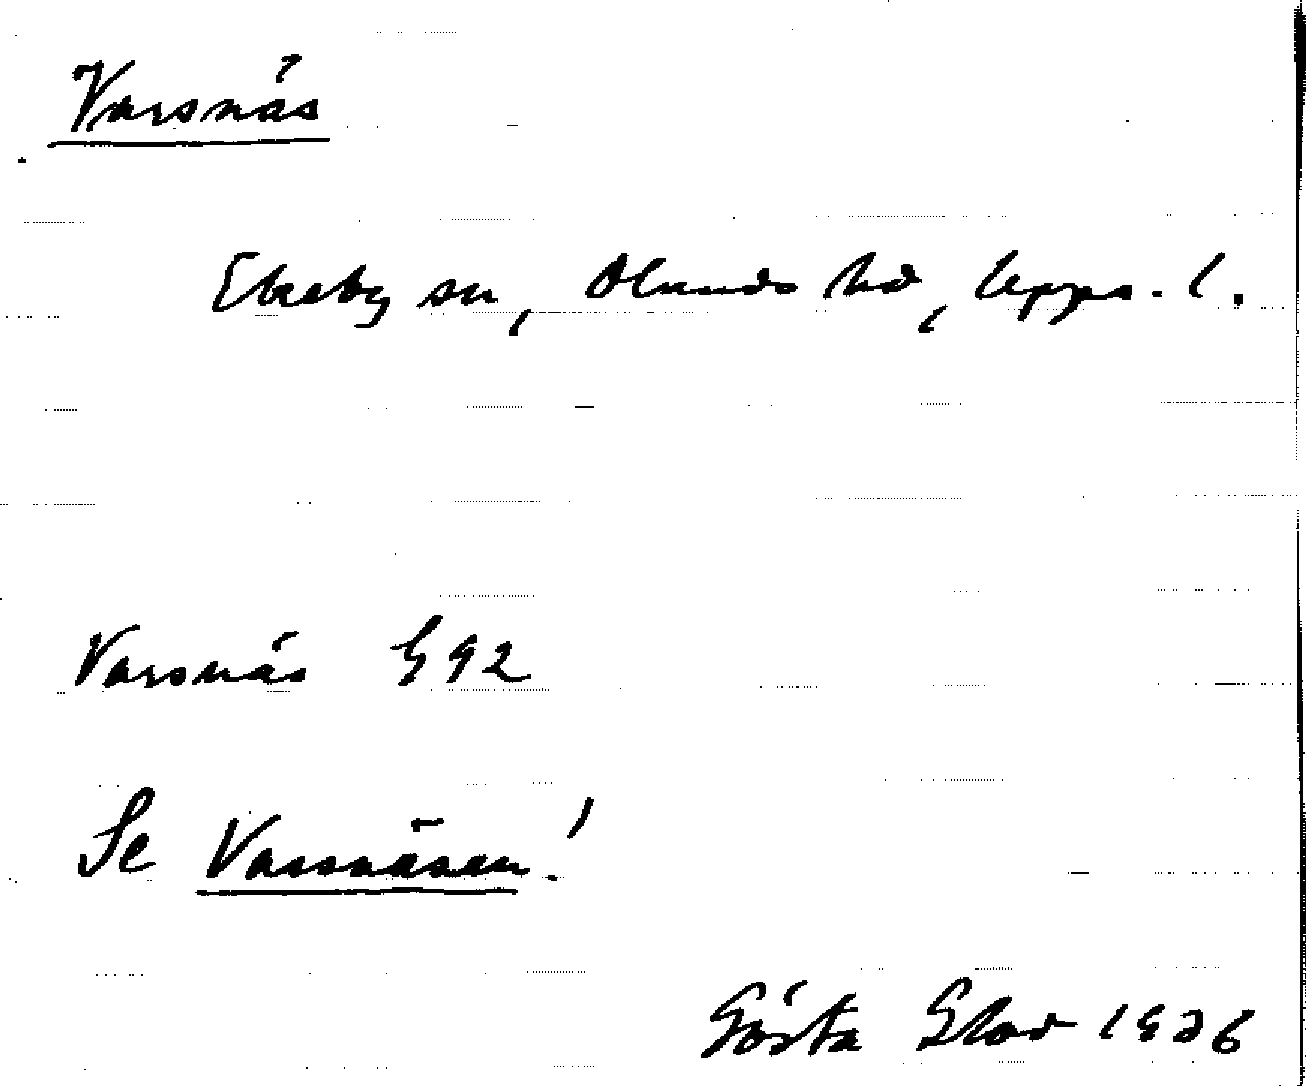 Varsnäs
Ekeby sn, Olands hd, Upps. l.
Varsnäs G 92
Se Varsnäsen!
Gösta 1936